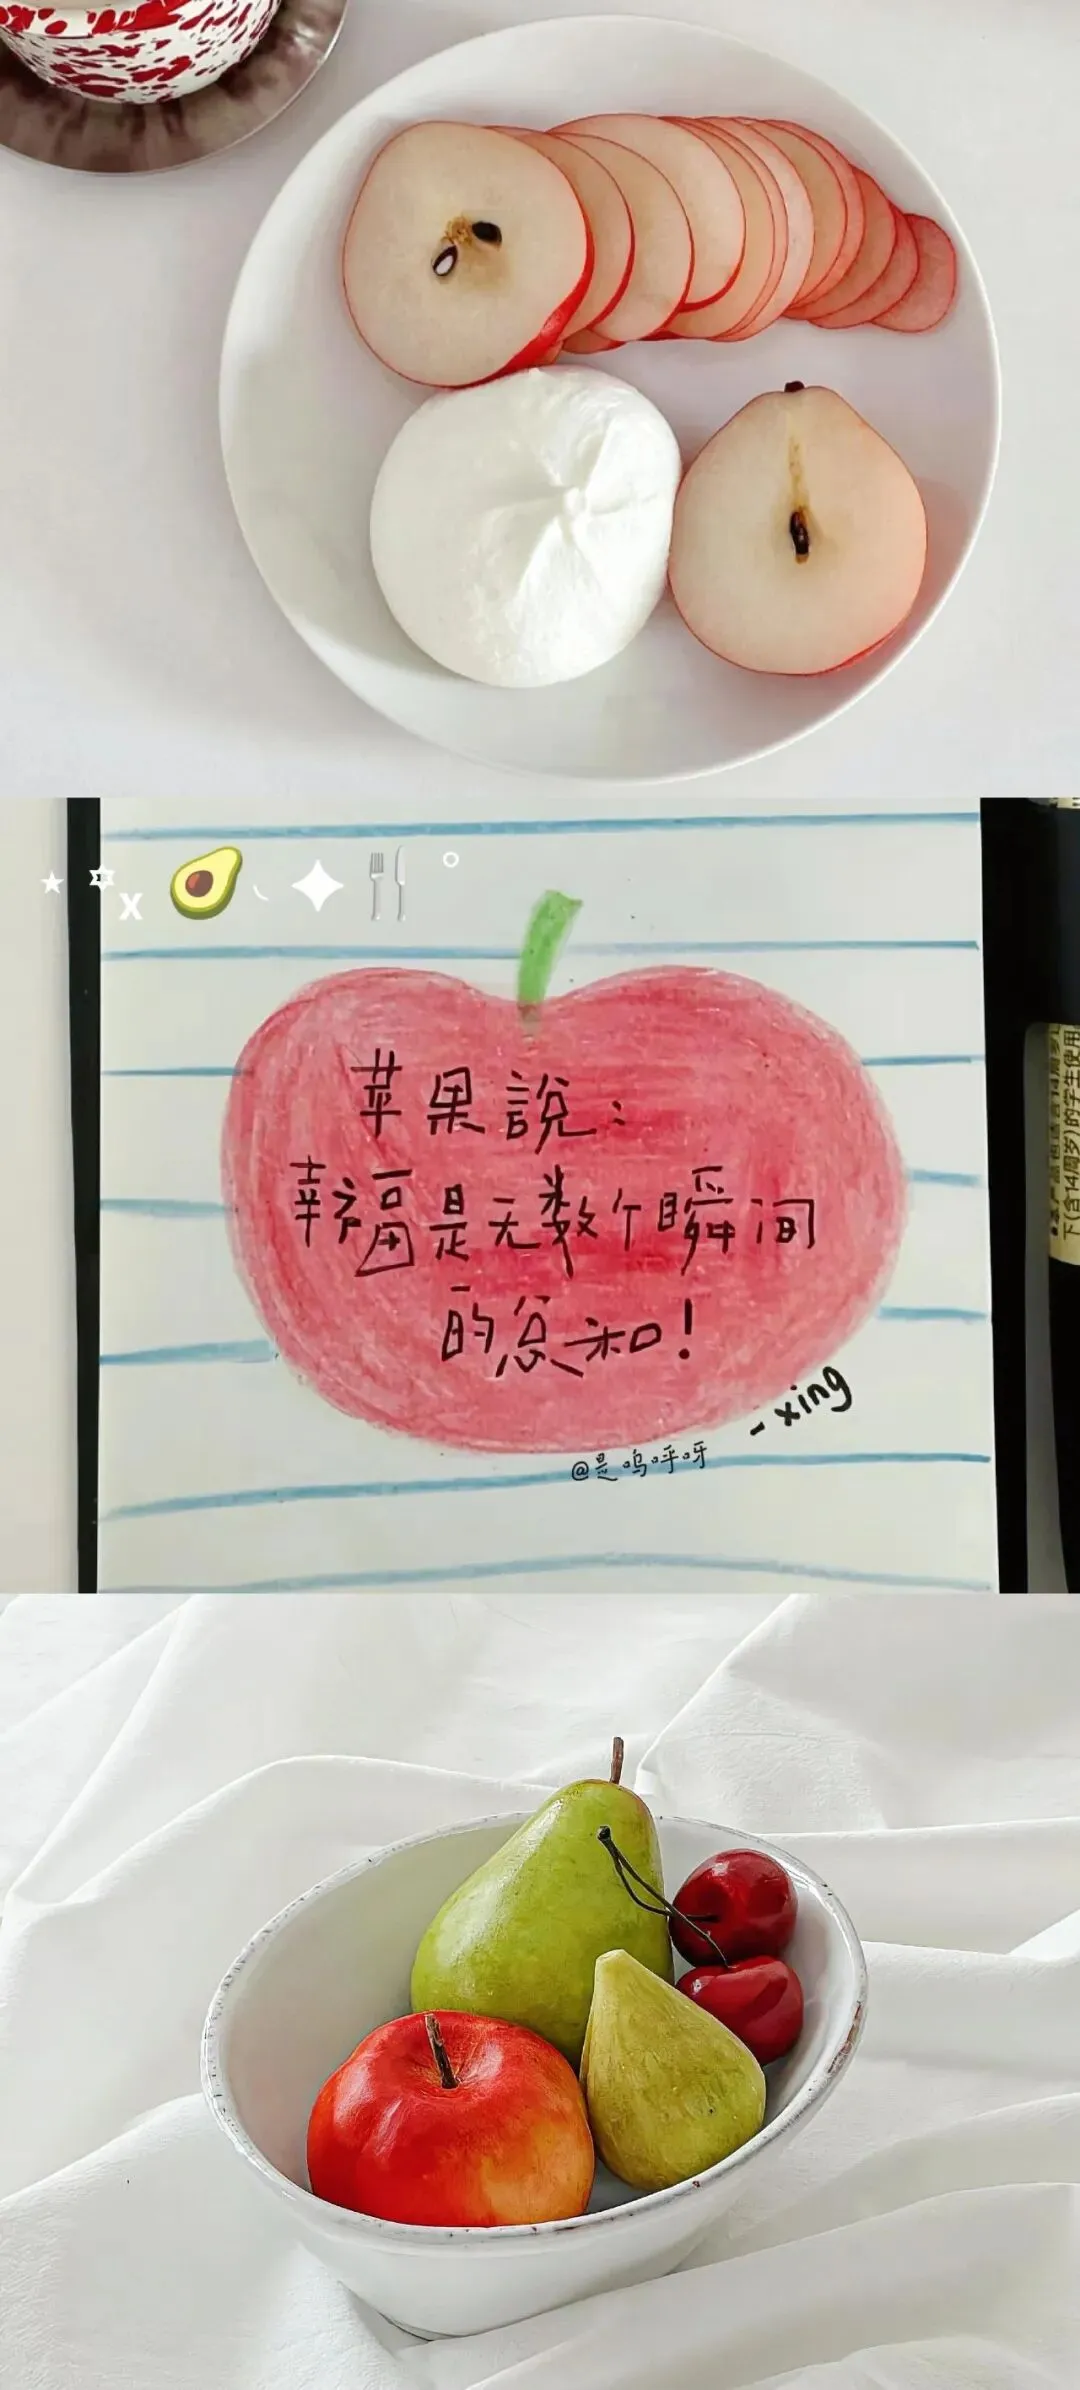 苹果說：
幸福是无数个瞬间
的总和！
- xing
@是呜呼呀
x
下含14周岁)的学生使用